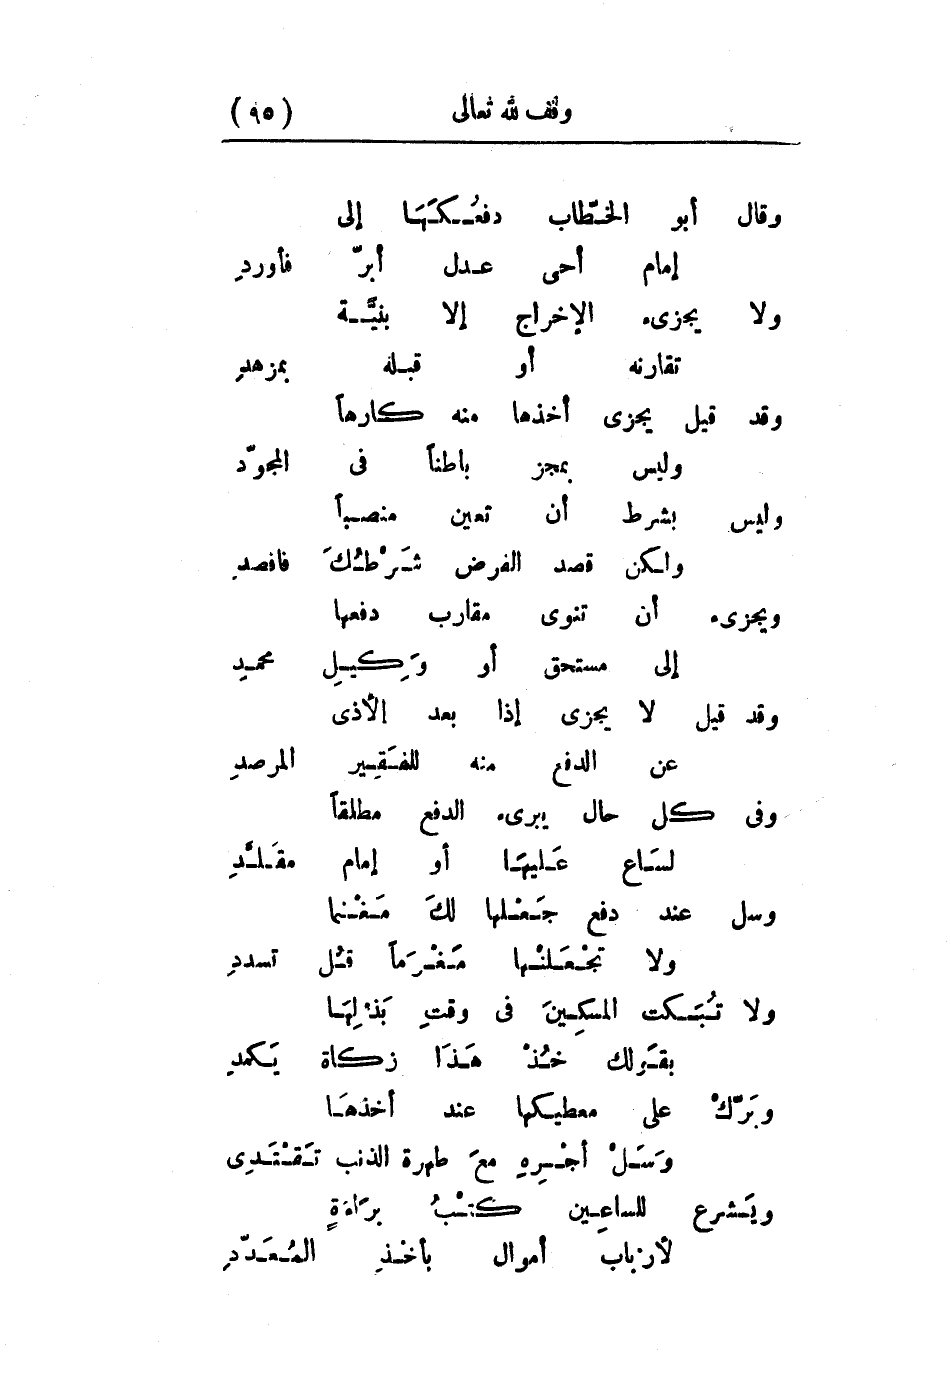 وقف لله تعالى (٩٥)
وقال أبو الخطّاب دفعُكَهَا إلى
إمام أحى عدل أبرّ فأوردِ
ولا يجزىء الإخراج إلا بنيَّة
تقارنه أو قبله بمزهدِ
وقد قيل يجزى أخذها منه كارهاً
وليس بمجز باطناً فى المجوّد
وليس بشرط أن تعين منصباً
ولكن قصد الفرض شَرْطُكَ فاقصدِ
ويجزىء أن تنوى مقارب دفعها
إلى مستحق أو وَكِيلِ محمدِ
وقد قيل لا يجزى إذا بعد الأذى
عن الدفع منه للفَقِير المرصدِ
وفى كل حال يبرىء الدفع مطلقاً
لسَاع عَليهَا أو إمام مقَلَّدِ
وسل عند دفع جَعْلها لكَ مَغْنما
ولا تجْعَلنْها مَغْرَماً قُل تسددِ
ولا تُبَكت المسكِينَ فى وقتِ بَذْلِهَا
بقَولك خُذْ هَذَا زكاة يَكمدِ
وبَرّكْ على معطيكها عند أخذهَا
وَسَلْ أجْرِهِ معَ طهرة الذنب تَقْتَدِى
ويَشرع للساعِين كتْبُ برَاءَةٍ
لأرْباب أموال بأخْذِ المُعَدّدِ